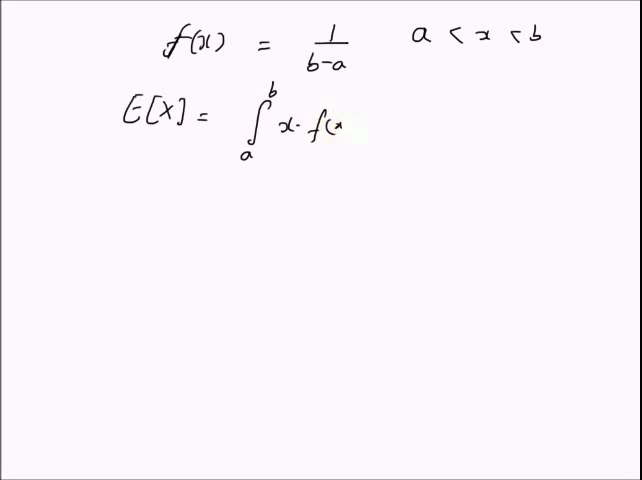 f(x) = 1/(b-a) a < x < b
E[X] = ∫_a^b x. f(x